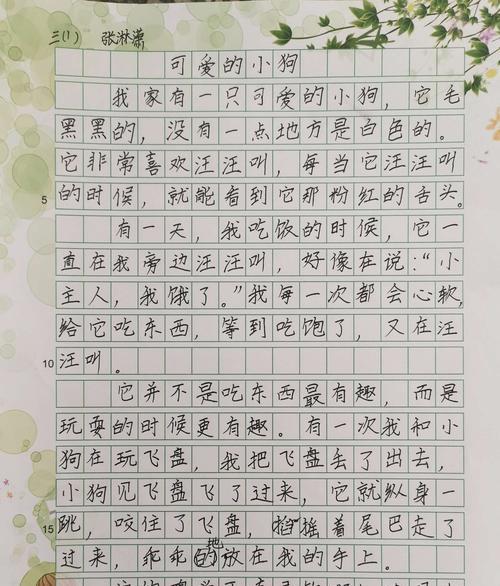 三(1) 张淋潇
可爱的小狗
我家有一只可爱的小狗，它毛
黑黑的，没有一点地方是白色的。
它非常喜欢汪汪叫，每当它汪汪叫
5 的时候，就能看到它那粉红的舌头。
有一天，我吃饭的时候，它一
直在我旁边汪汪叫，好像在说：“小
主人，我饿了。”我每一次都会心软，
给它吃东西，等到吃饱了，又在汪
10 汪叫。
它并不是吃东西最有趣，而是
玩耍的时候更有趣。有一次我和小
狗在玩飞盘，我把飞盘丢了出去，
小狗见飞盘飞了过来，它就纵身一
15 跳，咬住了飞盘，摇着尾巴走了
过来，乖乖地放在我的手上。